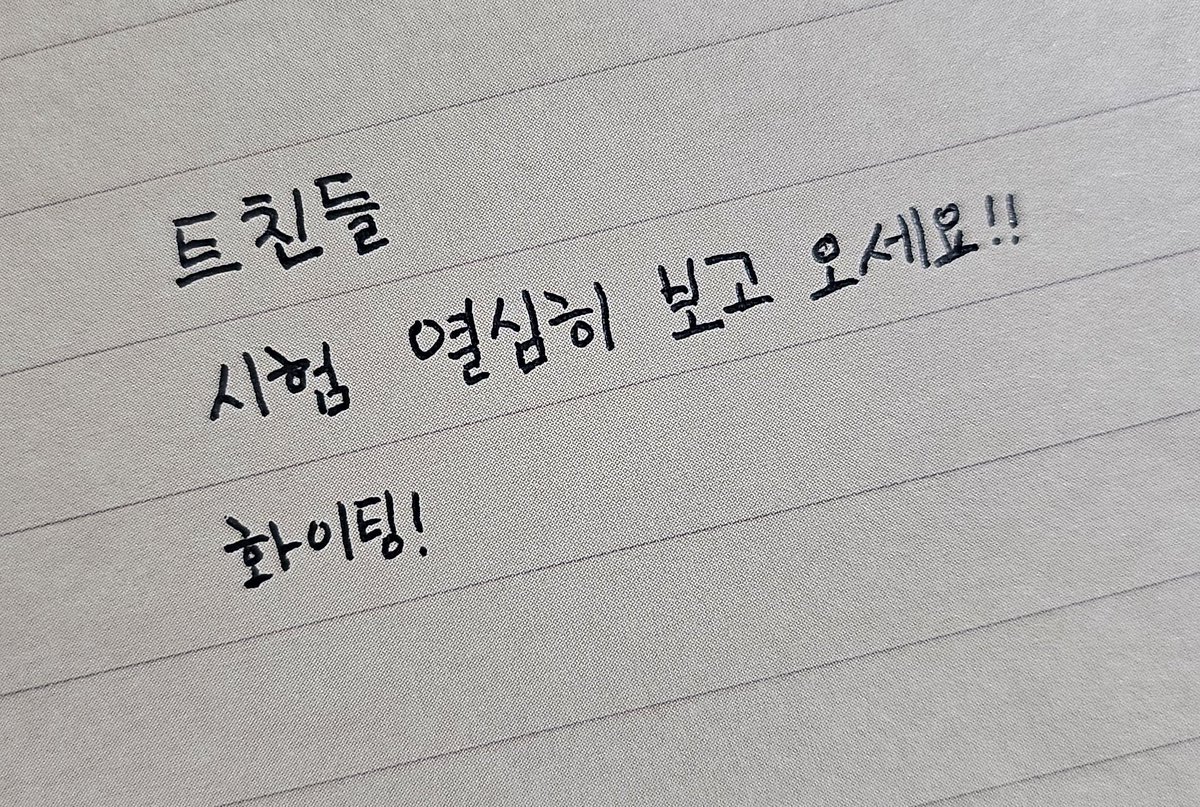 트친들
시험 열심히 보고 오세요!!
화이팅!